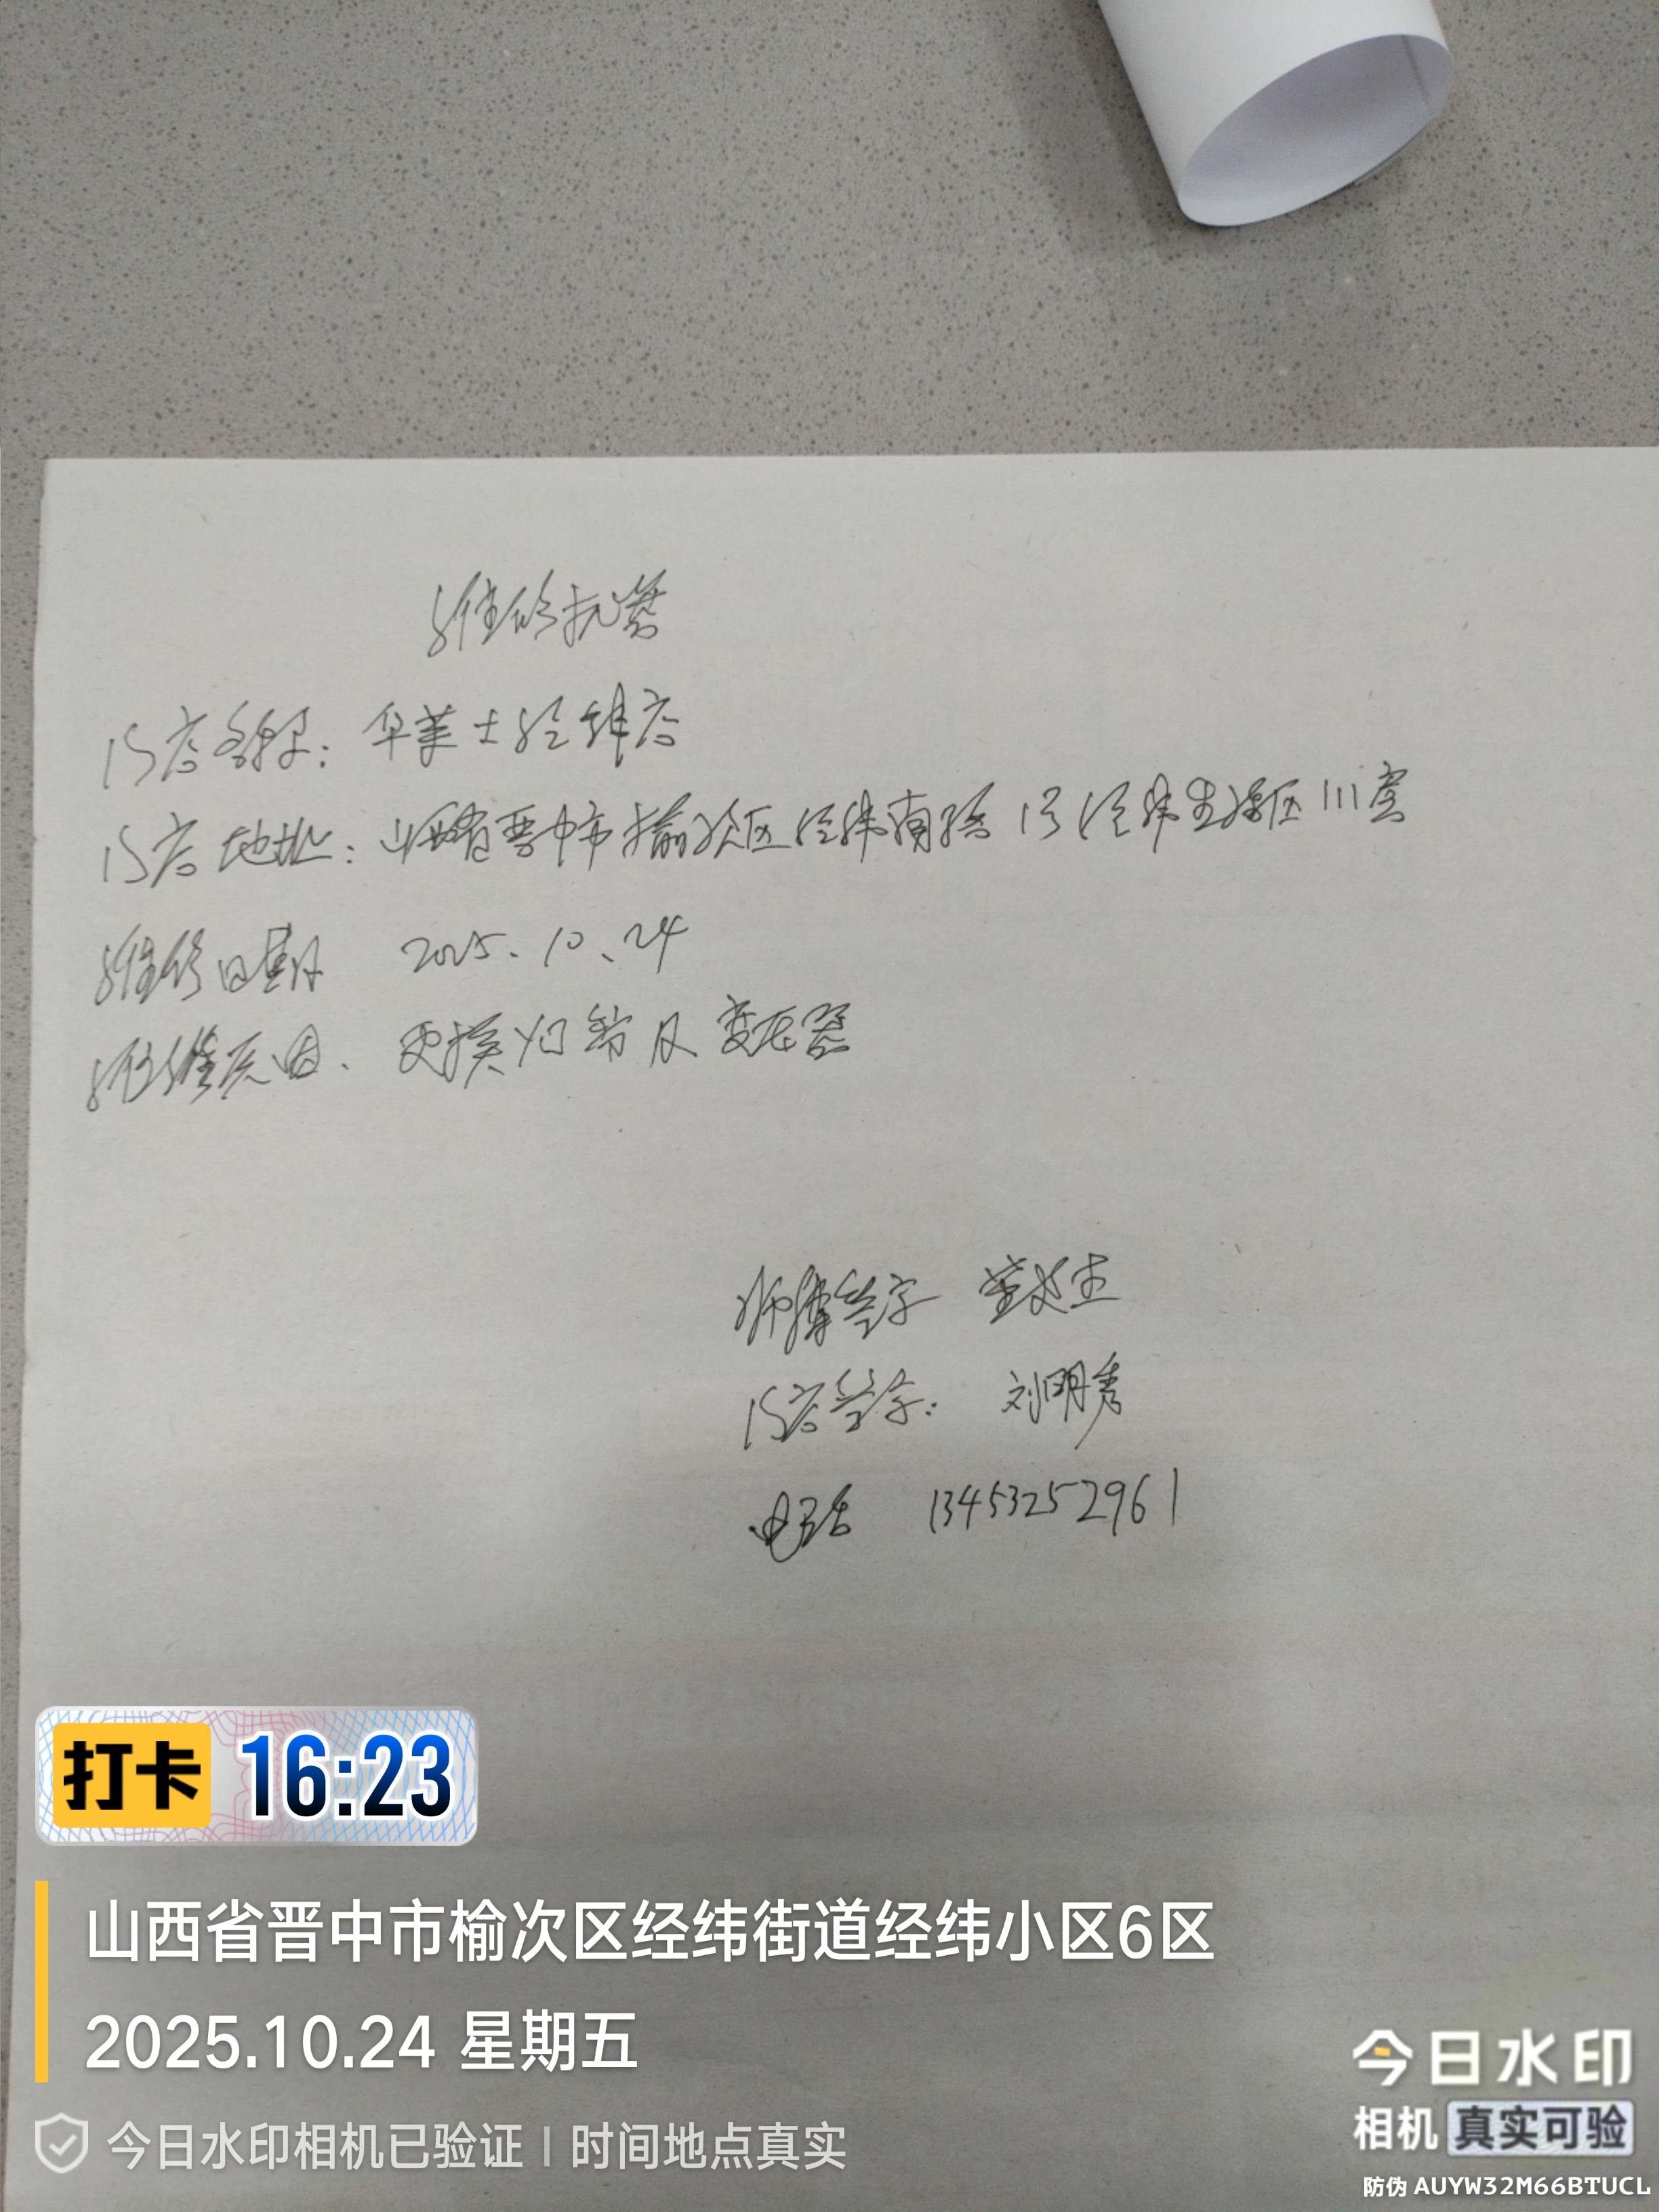 维修执答
门店名称：华莱士经纬店
门店地址：山西省晋中市榆次区经纬南路1号经纬生活区111室
维修日期 2025.10.24
维修原因、更换灯带及变压器
师傅签字
门店签字：刘明秀
电话 13453252961
打卡 16:23
山西省晋中市榆次区经纬街道经纬小区6区
2025.10.24 星期五
今日水印相机已验证 | 时间地点真实
今日水印
相机 真实可验
防伪 AUYW32M66BTUCL